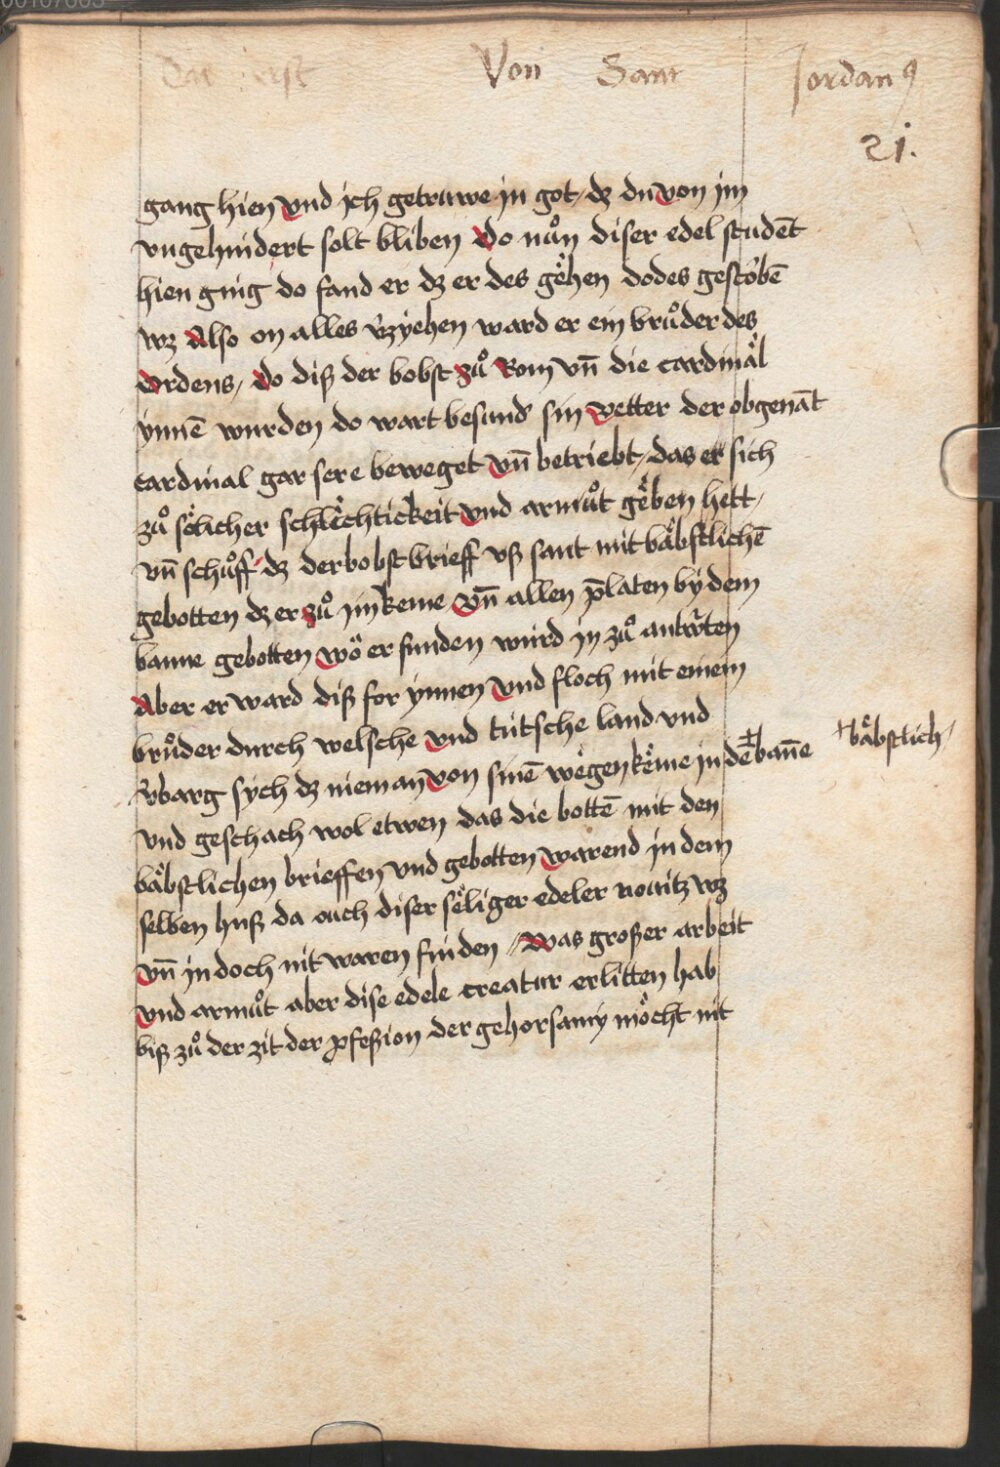 Von Sant Jordanꝰ
21.
gang hien vnd ich getruwe in got / dz du von im
vngehindert solt bliben Do nuͦn diser edel studēt
hien ging do fand er dz er des gěhen dodes gestorbē
wz Also on alles v̓zyehen ward er ein bruͦder des
Ordens / do diß der bobst zuͦ Rom vn̄ die cardinaͤl
ynnē wurden do wart besund̓ sin vetter der obgenāt
cardinal gar sere beweget vn̄ betriebt / das er sich
zuͦ soͤlicher schlěchtickeit vnd armuͦt gěben hett /
vn̄ schuͦff dz der bobst brieff vß sant mit baͤbstlichē
gebotten dz er zuͦ im keme vn̄ allen p̄laten by dem
banne gebotten woͤ er funden wurd in zuͦ antwr̓ten
Aber er ward diß for ynnen vnd floch mit einem
bruͦder durch welsche vnd tütsche land vnd
v̓barg sych dz nieman von sinē wěgen kěme in dē + bañe
+ baͤbstlich /
vnd geschach wol etwen das die bottē mit den
baͤbstlichen brieffen vnd gebotten warend in dem
selben huß da ouch diser sěliger edeler nouitz wz
vn̄ in doch nit waren finden / Was großer arbeit
vnd armuͦt aber dise edele creatur erlitten hab
biß zuͦ der zit der ꝓfeßion der gehorsamy moͤcht nit